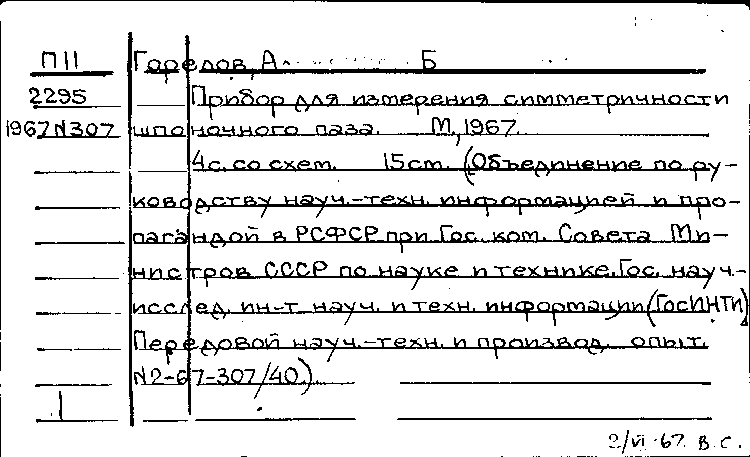 П11 Горелов, А. Б
2295 Прибор для измерения симметричности
1967 N307 шпоночного паза. М., 1967.
4с. со схем. 15см. (Объединение по ру-
ководству науч.-техн. информацией и про-
пагандой в РСФСР при Гос. ком. Совета Ми-
нистров СССР по науке и технике. Гос. науч.-
исслед. ин-т науч. и техн. информации (ГосИНТИ)
Передовой науч.-техн. и производ. опыт.
N2-67-307/40).
1
2/VI-67 В.С.